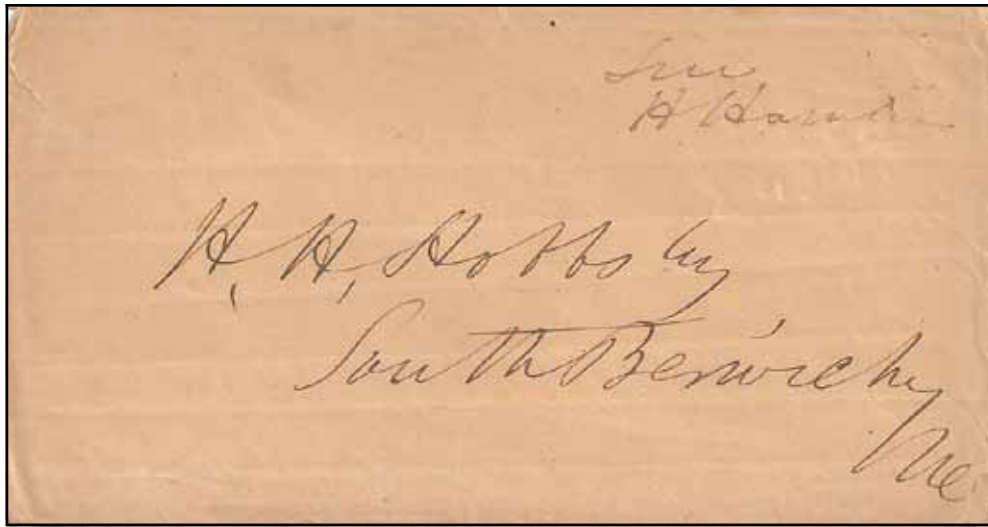 Free
H Hamlin
H, H, Hobbs Esq
South Berwick,
Me